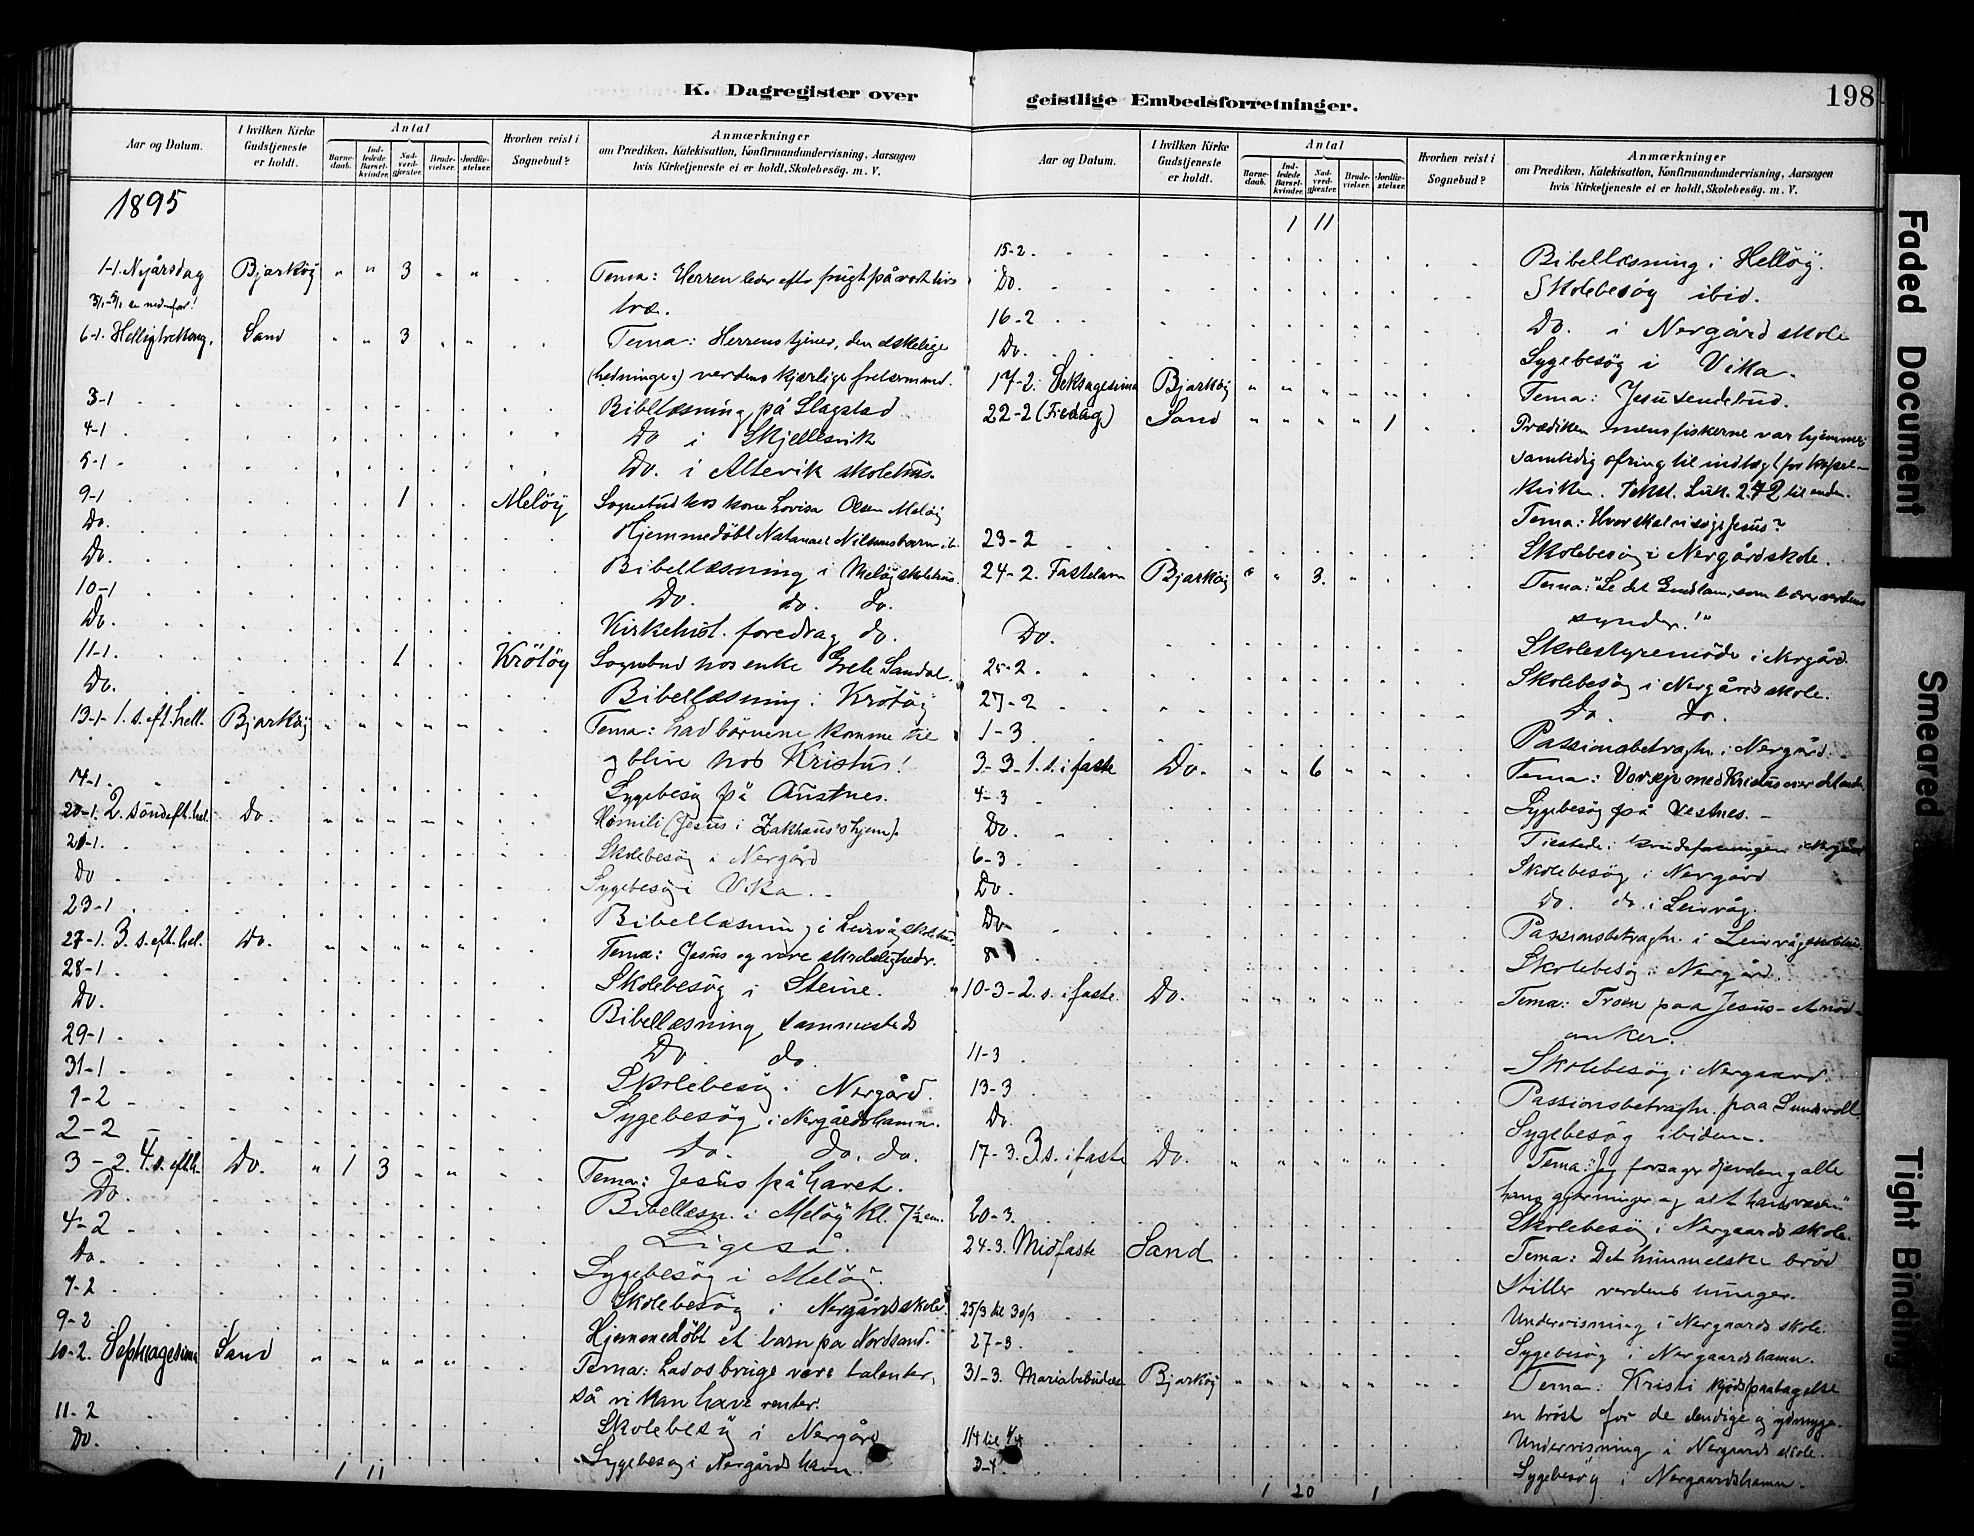 K. Dagregister over
Aar og Datum.
I hvilken Kirke Gudstjeneste er holdt.
Antal
Barnedaab.
Indledede Barselkvinder.
Nadverdgjæster.
Brudevielser.
Jordfæstelser.
Hvorhen reist i Sognebud?
Anmærkninger
om Prædiken, Katekisation, Konfirmandundervisning, Aarsagen
hvis Kirketjeneste ei er holdt, Skolebesøg. m. V.
1895
1-1. Nyårsdag Bjarkøy " " 3 " " Tema: Herren leder efter frugt på vort livs
træ.
6-1. Sand " " 3 Tema: Herrens tjener, den elskelige
verdens kjærlige
3-1 Bibellæsning på Slagstad
4-1 Do i Skjellesvik
5-1 Do. i Altevik skolehus.
9-1 1 Meløy Sognebud hos kone Lovisa Olsen Meløy
Do. Hjemmedøbt Natanael Nilsens barn
Do. Bibellæsning i Meløy skolehus
10-1 Do. do. do.
Do. Kirkehist. foredrag do.
11-1. 1 Krøtøy Sognebud hos enke Grete Sandal.
Do. Bibellæsning i Krøtøy
13-1- 1. s. eft. hell. Bjarkøy " " " " " Tema: Lad børnene komme til
og blive hos Kristus!
14-1. Sygebesøg på Austnes.
20-1. 2. sønd eft. hel. Do. " " " " " Homili (Jesus i Zakhæus's hjem).
21-1. Skolebesøg i Nergård
Do Sygebesøg i Vika.
23-1 Bibellæsning i Leirvåg skolehus
27-1. 3. s. eft. hel. Do. " " " " " Tema: Jesus og vore skrøbeligheder.
28-1 Skolebesøg i Steine.
Do. Bibellæsning sammesteds
29-1 Do. do.
31-1 Skolebesøg i Nergård.
1-2 Sygebesøg i Nergårdshamn.
2-2 Do. Do. Do.
3-2. 4. s. eft h. Do. " 1 3 " " Tema: Jesus på havet.
Do. Bibellæsn. i Meløy kl. 7½ em.
4-2 Ligeså.
Do. Sygebesøg i Meløy.
7-2 Skolebesøg i Nergårdskole.
9-2 Hjemmedøbt et barn på Nordsand.
10-2. Septuagesima Sand " " " " " Tema: Lad os bruge vore talenter,
så vi kan have renter.
11-2 Skolebesøg i Nergård
Do. Sygebesøg i Nergårdshavn.
1 11
geistlige Embedsforretninger.
198
Aar og Datum.
I hvilken Kirke Gudstjeneste er holdt.
Antal
Barnedaab.
Indledede Barselkvinder.
Nadverdgjæster.
Brudevielser.
Jordfæstelser.
Hvorhen reist i Sognebud?
Anmærkninger
om Prædiken, Katekisation, Konfirmandundervisning, Aarsagen
hvis Kirketjeneste ei er holdt, Skolebesøg. m. V.
1 11
15-2 Bibellæsning i Helløy.
Do. Skolebesøg ibid.
16-2 Do. i Nergårdskole
Do. Sygebesøg i Vika.
17-2. Seksagesima Bjarkøy " " " " " Tema: Jesu sendebud.
22-2 (Fredag) Sand " " " " 1 Prædiken mens fiskerne var hjemme;
samtidig ofring til indtægt for
kirken. Tekst. Luk. til enden.
Tema: Hvor skal vi søge Jesus?
23-2 Skolebesøg i Nergårdskole.
24-2. Fastelavn Bjarkøy " " 3. " " Tema: "Se det Guds lam, som bærer verdens
synder!"
Do. Skolestyremøde i Nergård.
25-2 Skolebesøg i Nergårdsskole.
27-2 Do. do.
1-3 Passionsbetragtn. i Nergård.
3-3. 1. s. i faste Do. " " 6 " " Tema: Vor sejr med Kristus over
4-3 Sygebesøg på Vestnes.
Do. Tilstede i kvindeforeningen i Nergård
6-3 Skolebesøg i Nergård
Do. Do. do. i Leirvåg.
Do Passionsbetragtn. i Leirvåg skolehus
8 Skolebesøg i Nergård.
10-3-2. s. i faste. Do. " " " " " Tema: Troen paa Jesus -
anker.
11-3 Skolebesøg i Nergaard.
13-3 Passionsbetragtn. paa Sundvoll
Do. Sygebesøg ibidem.
17-3. 3. s. i faste Do. " " " " " Tema: "Jeg forsager djevelen og alle
hans gjerninger og alt hans væsen"
20-3. Skolebesøg i Nergaards skole.
24-3. Midfaste Sand Tema: Det himmelske brød
stiller verdens hunger.
25/3 til 30/3 Undervisning i Nergaards skole.
27-3 Sygebesøg i Nergaardshamn.
31-3. Mariæbebudelse Bjarkøy " " " " " Tema: Kristi kjøds paatagelse
en trøst for de elendige og ydmyge.
1/4 til 4/4 Undervisning i Nergaards skole.
2-4. Sygebesøg i Nergaardshamn.
1 20 1
Faded Document
Smeared
Tight Binding